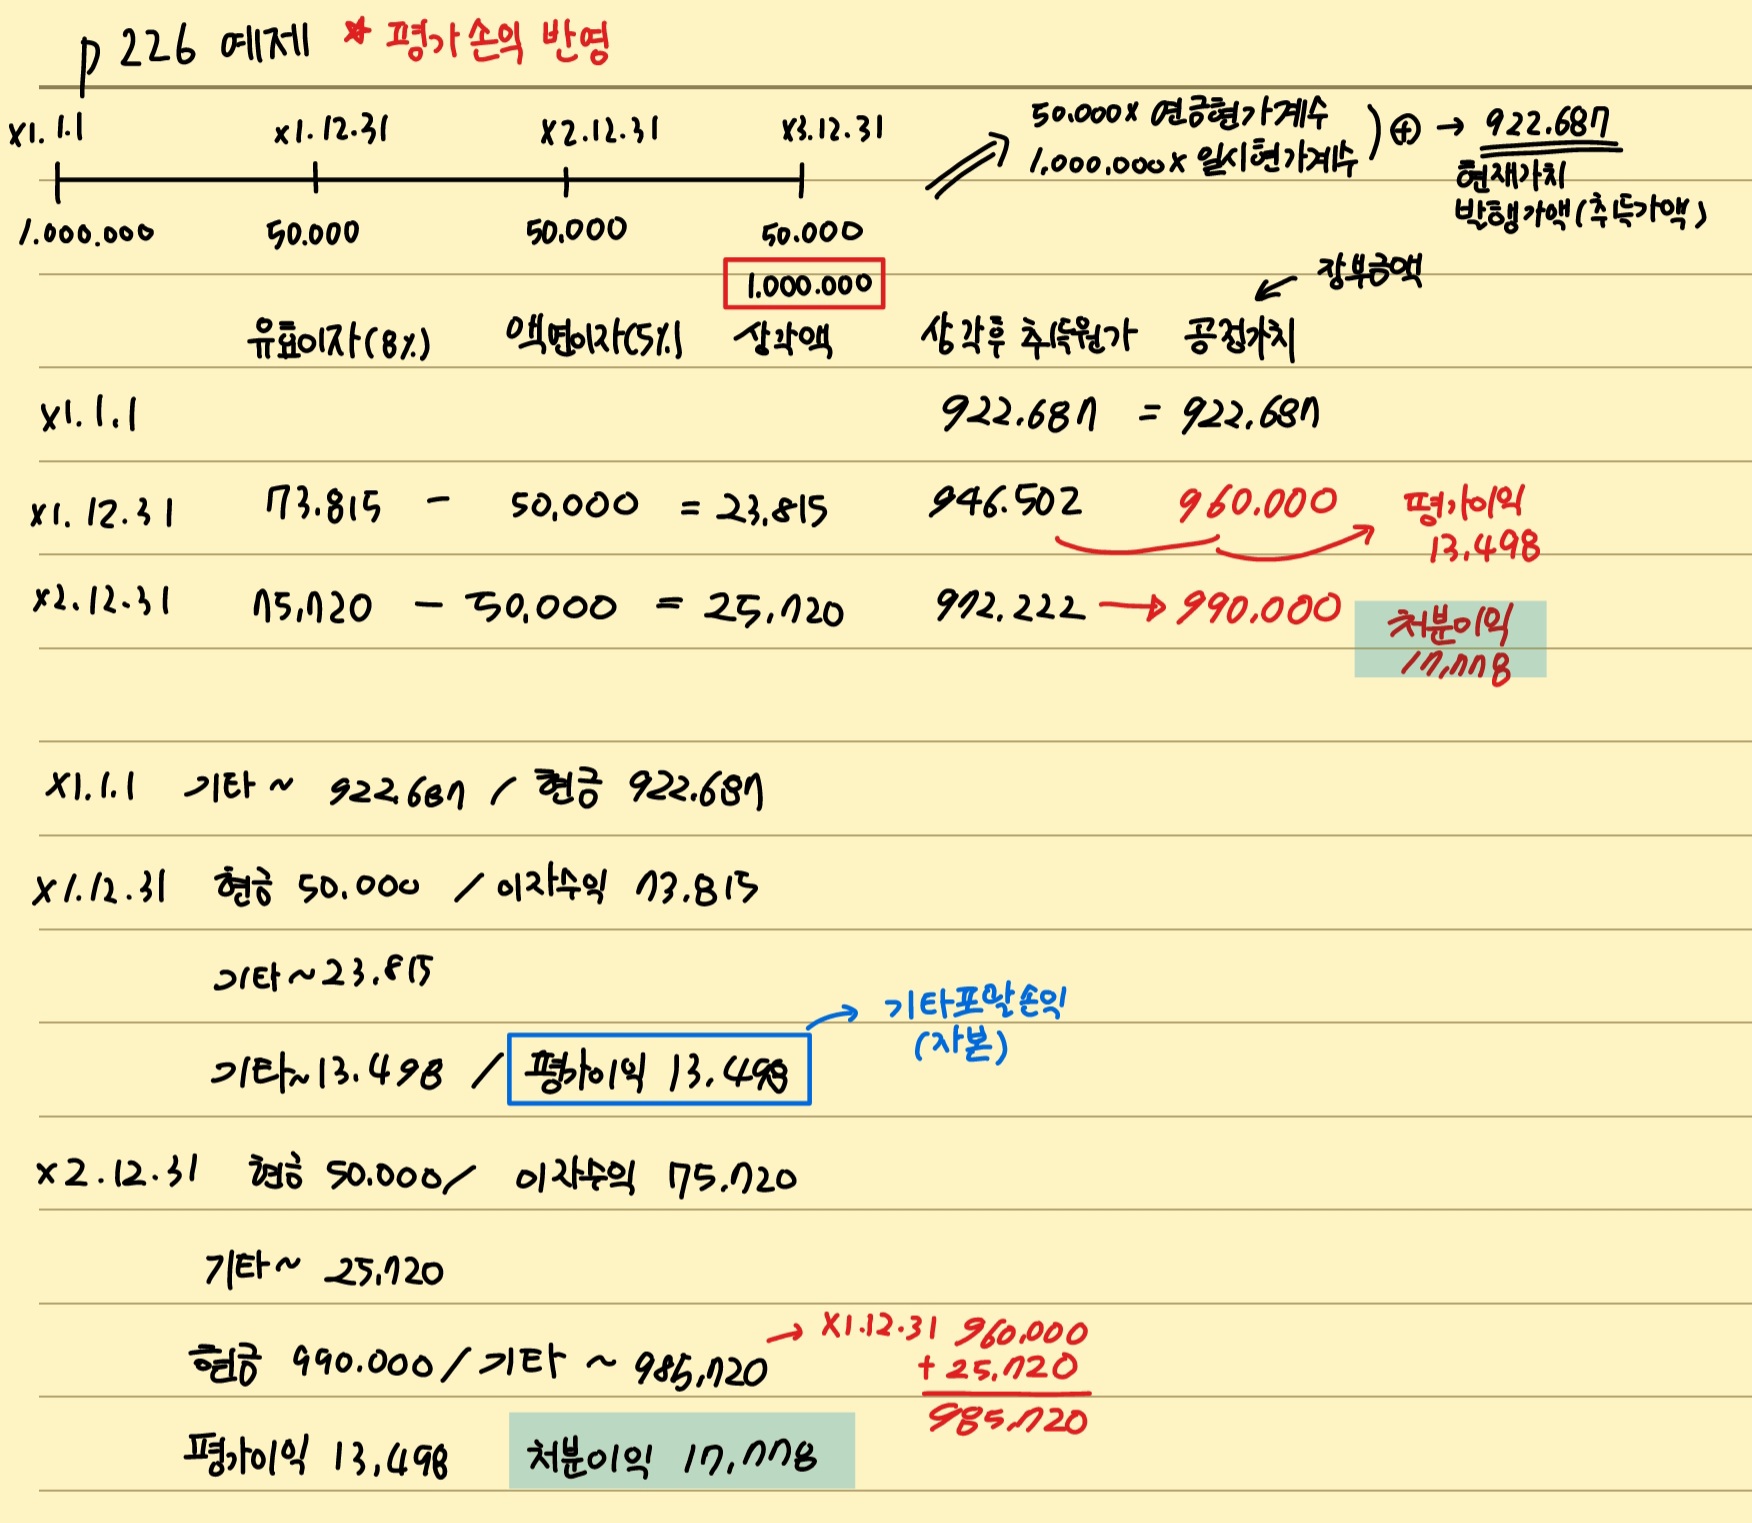 p 226 예제 * 평가손익 반영
x1. 1.1 x1.12.31 x2.12.31 x3.12.31
1.000.000 50.000 50.000 50.000
1.000.000
50.000 x 연금현가계수
1,000.000 x 일시현가계수 ) ⊕ → 922.687
현재가치
발행가액(취득가액)
장부금액
유효이자(8%) 액면이자(5%) 상각액 상각후 취득원가 공정가치
x1.1.1 922.687 = 922.687
x1.12.31 73.815 - 50,000 = 23,815 946.502 960.000 평가이익
13,498
x2.12.31 75,720 - 50,000 = 25,720 972.222 → 990,000 처분이익
17,778
x1.1.1 기타~ 922.687 / 현금 922.687
x1.12.31 현금 50.000 / 이자수익 73.815
기타~23.815
기타~13.498 / 평가이익 13,498 → 기타포괄손익
(자본)
x2.12.31 현금 50.000/ 이자수익 75.720
기타~ 25,720
현금 990.000 / 기타 ~ 985,720 → x1.12.31 960,000
+ 25,720
985,720
평가이익 13,498 처분이익 17,778